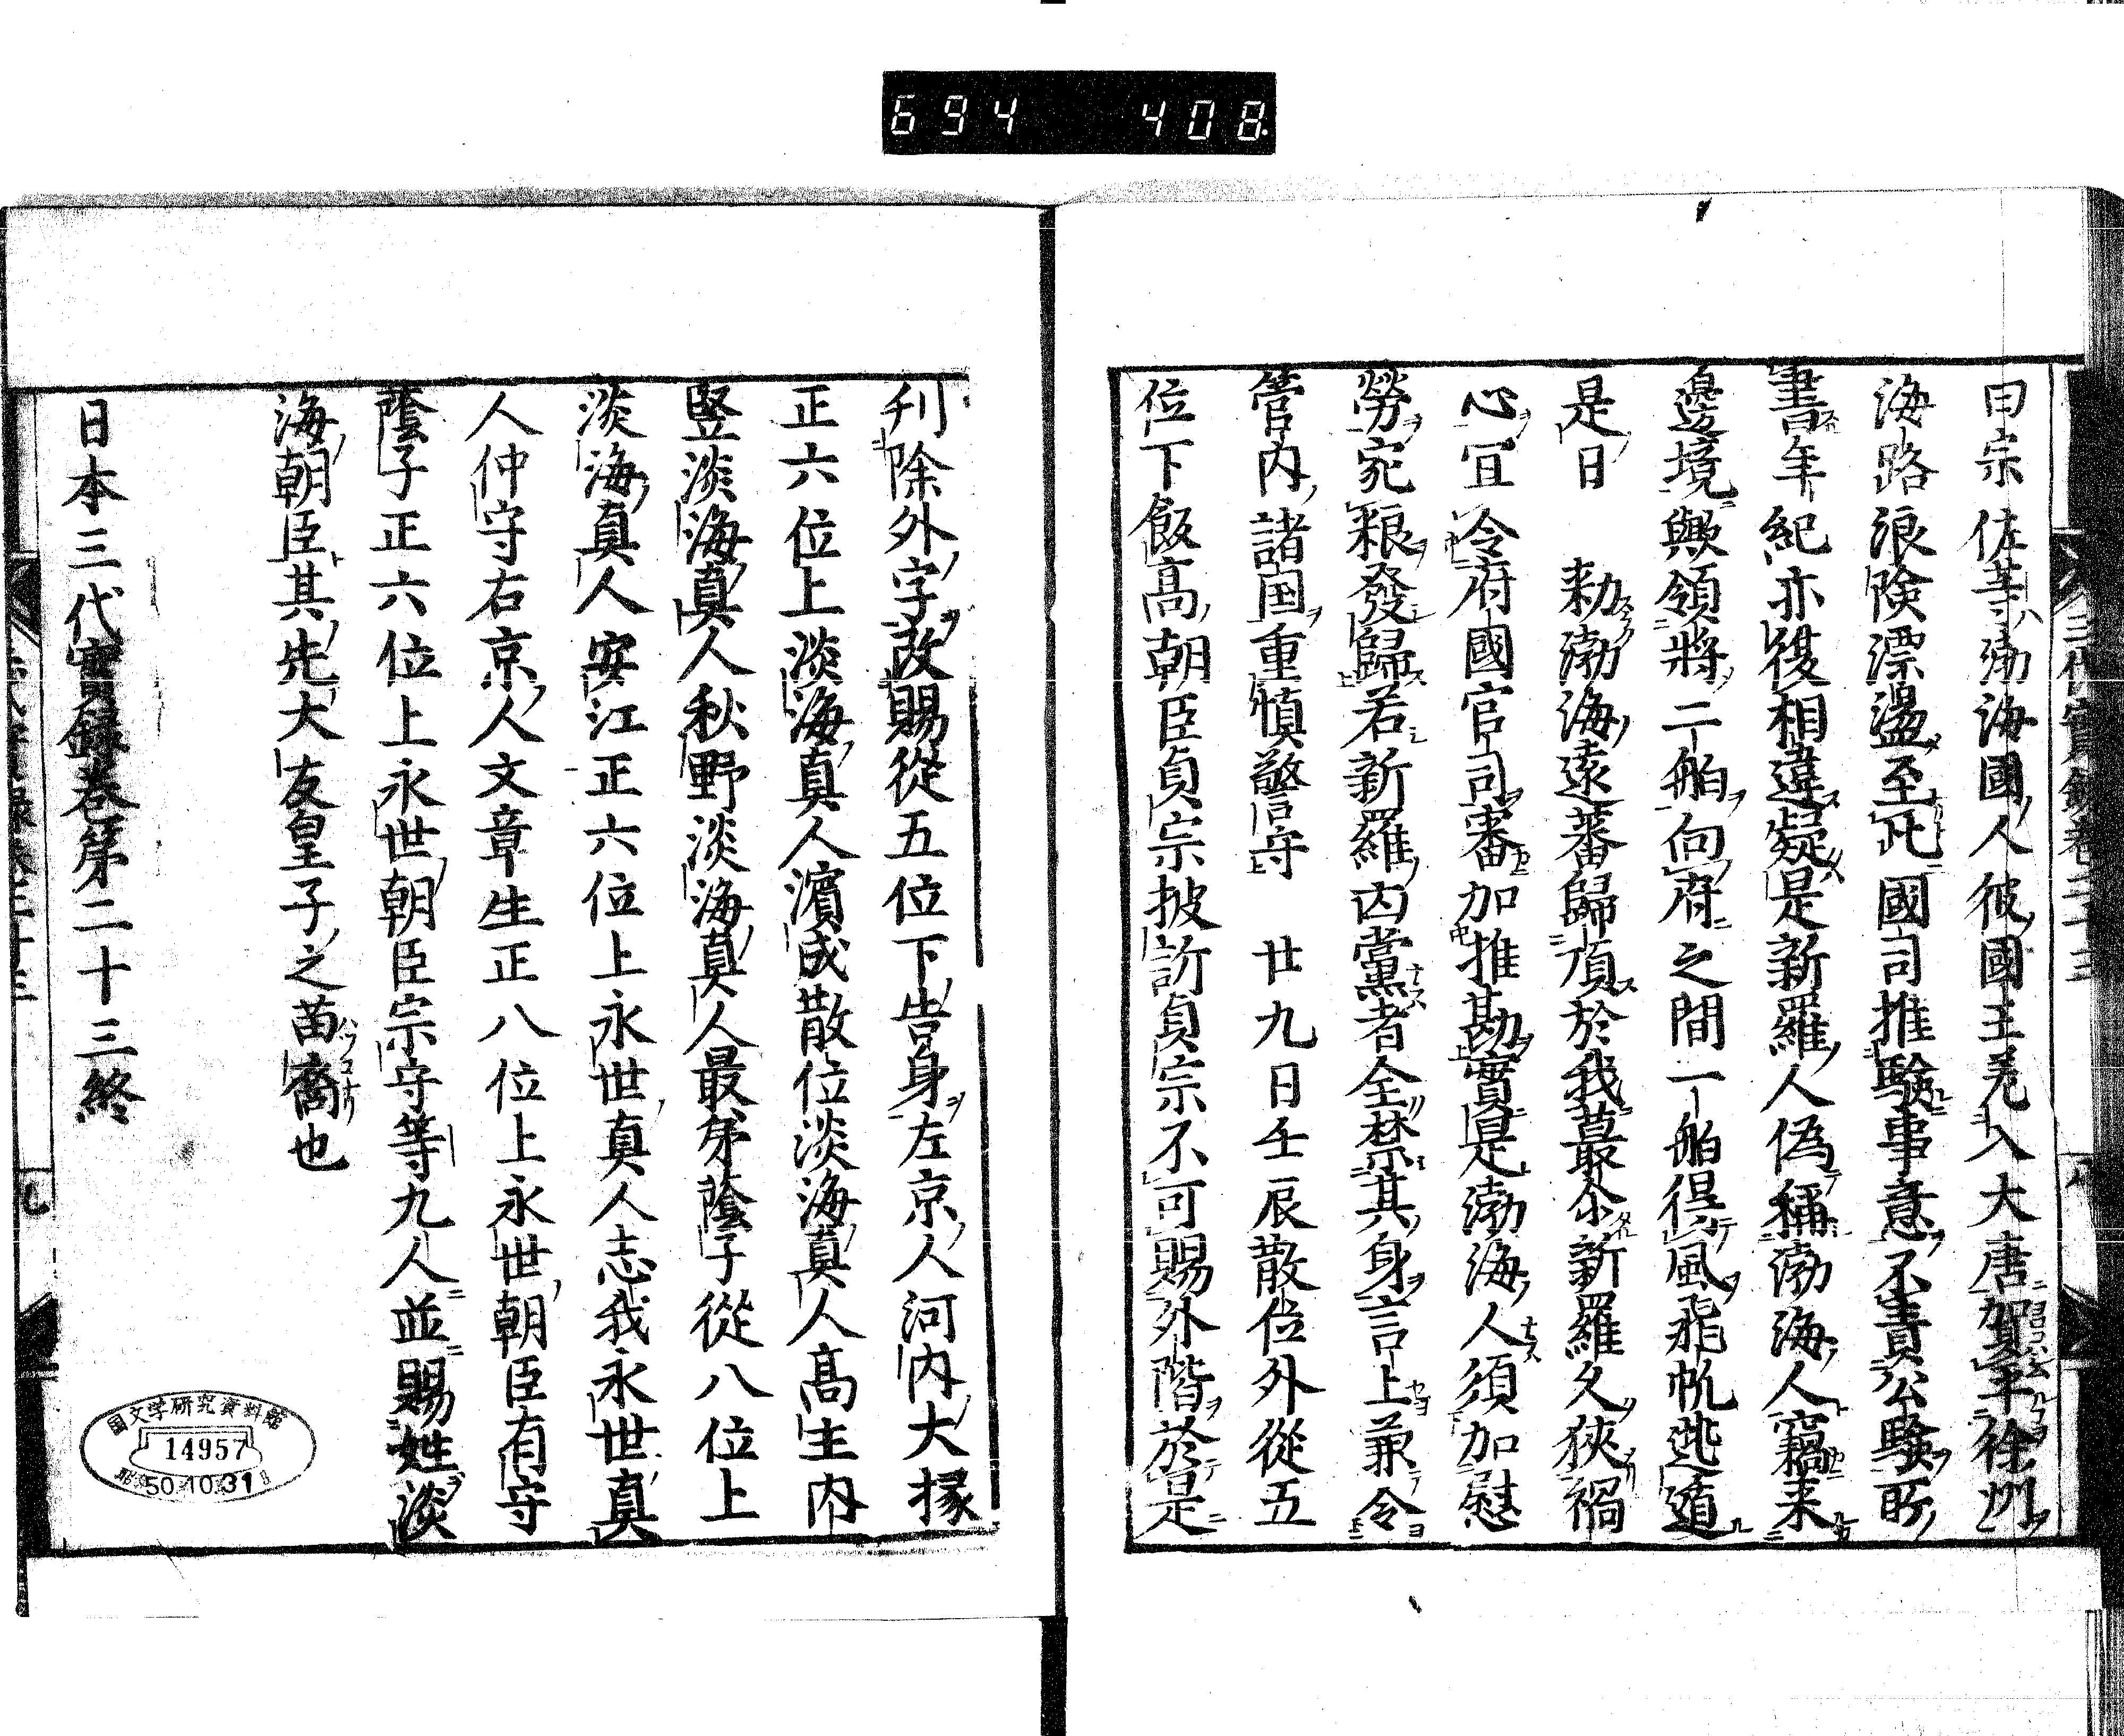 694 408
曰宗佐等渤海國人彼國王差入大唐賀平徐州
海路浪険漂盪至此國司推験事意不賷公驗所
書年紀亦復相違疑是新羅人偽稱渤海人竊来
邊境歟領將二舶向府之間一舶得風飛帆逃遁
是日 勅渤海遠蕃歸順於我蕞尒新羅久狹禍
心宜令府國官司審加推勘實是渤海人須加慰
勞宛粮發歸若新羅凶黨者全禁其身言上兼令
管内諸国重慎警守 廿九日壬辰散位外從五
位下飯高朝臣貞宗披訴貞宗不可賜外階於是
刊除外字改賜從五位下告身左京人河内大掾
正六位上淡海真人濱成散位淡海真人高主内
竪淡海真人秋野淡海真人最弟蔭子從八位上
淡海真人安江正六位上永世真人志我永世真
人仲守右京人文章生正八位上永世朝臣有守
蔭子正六位上永世朝臣宗守等九人並賜姓淡
海朝臣其先大友皇子之苗裔也
日本三代實録巻第二十三終
国文学研究資料館
14957
50.10.31